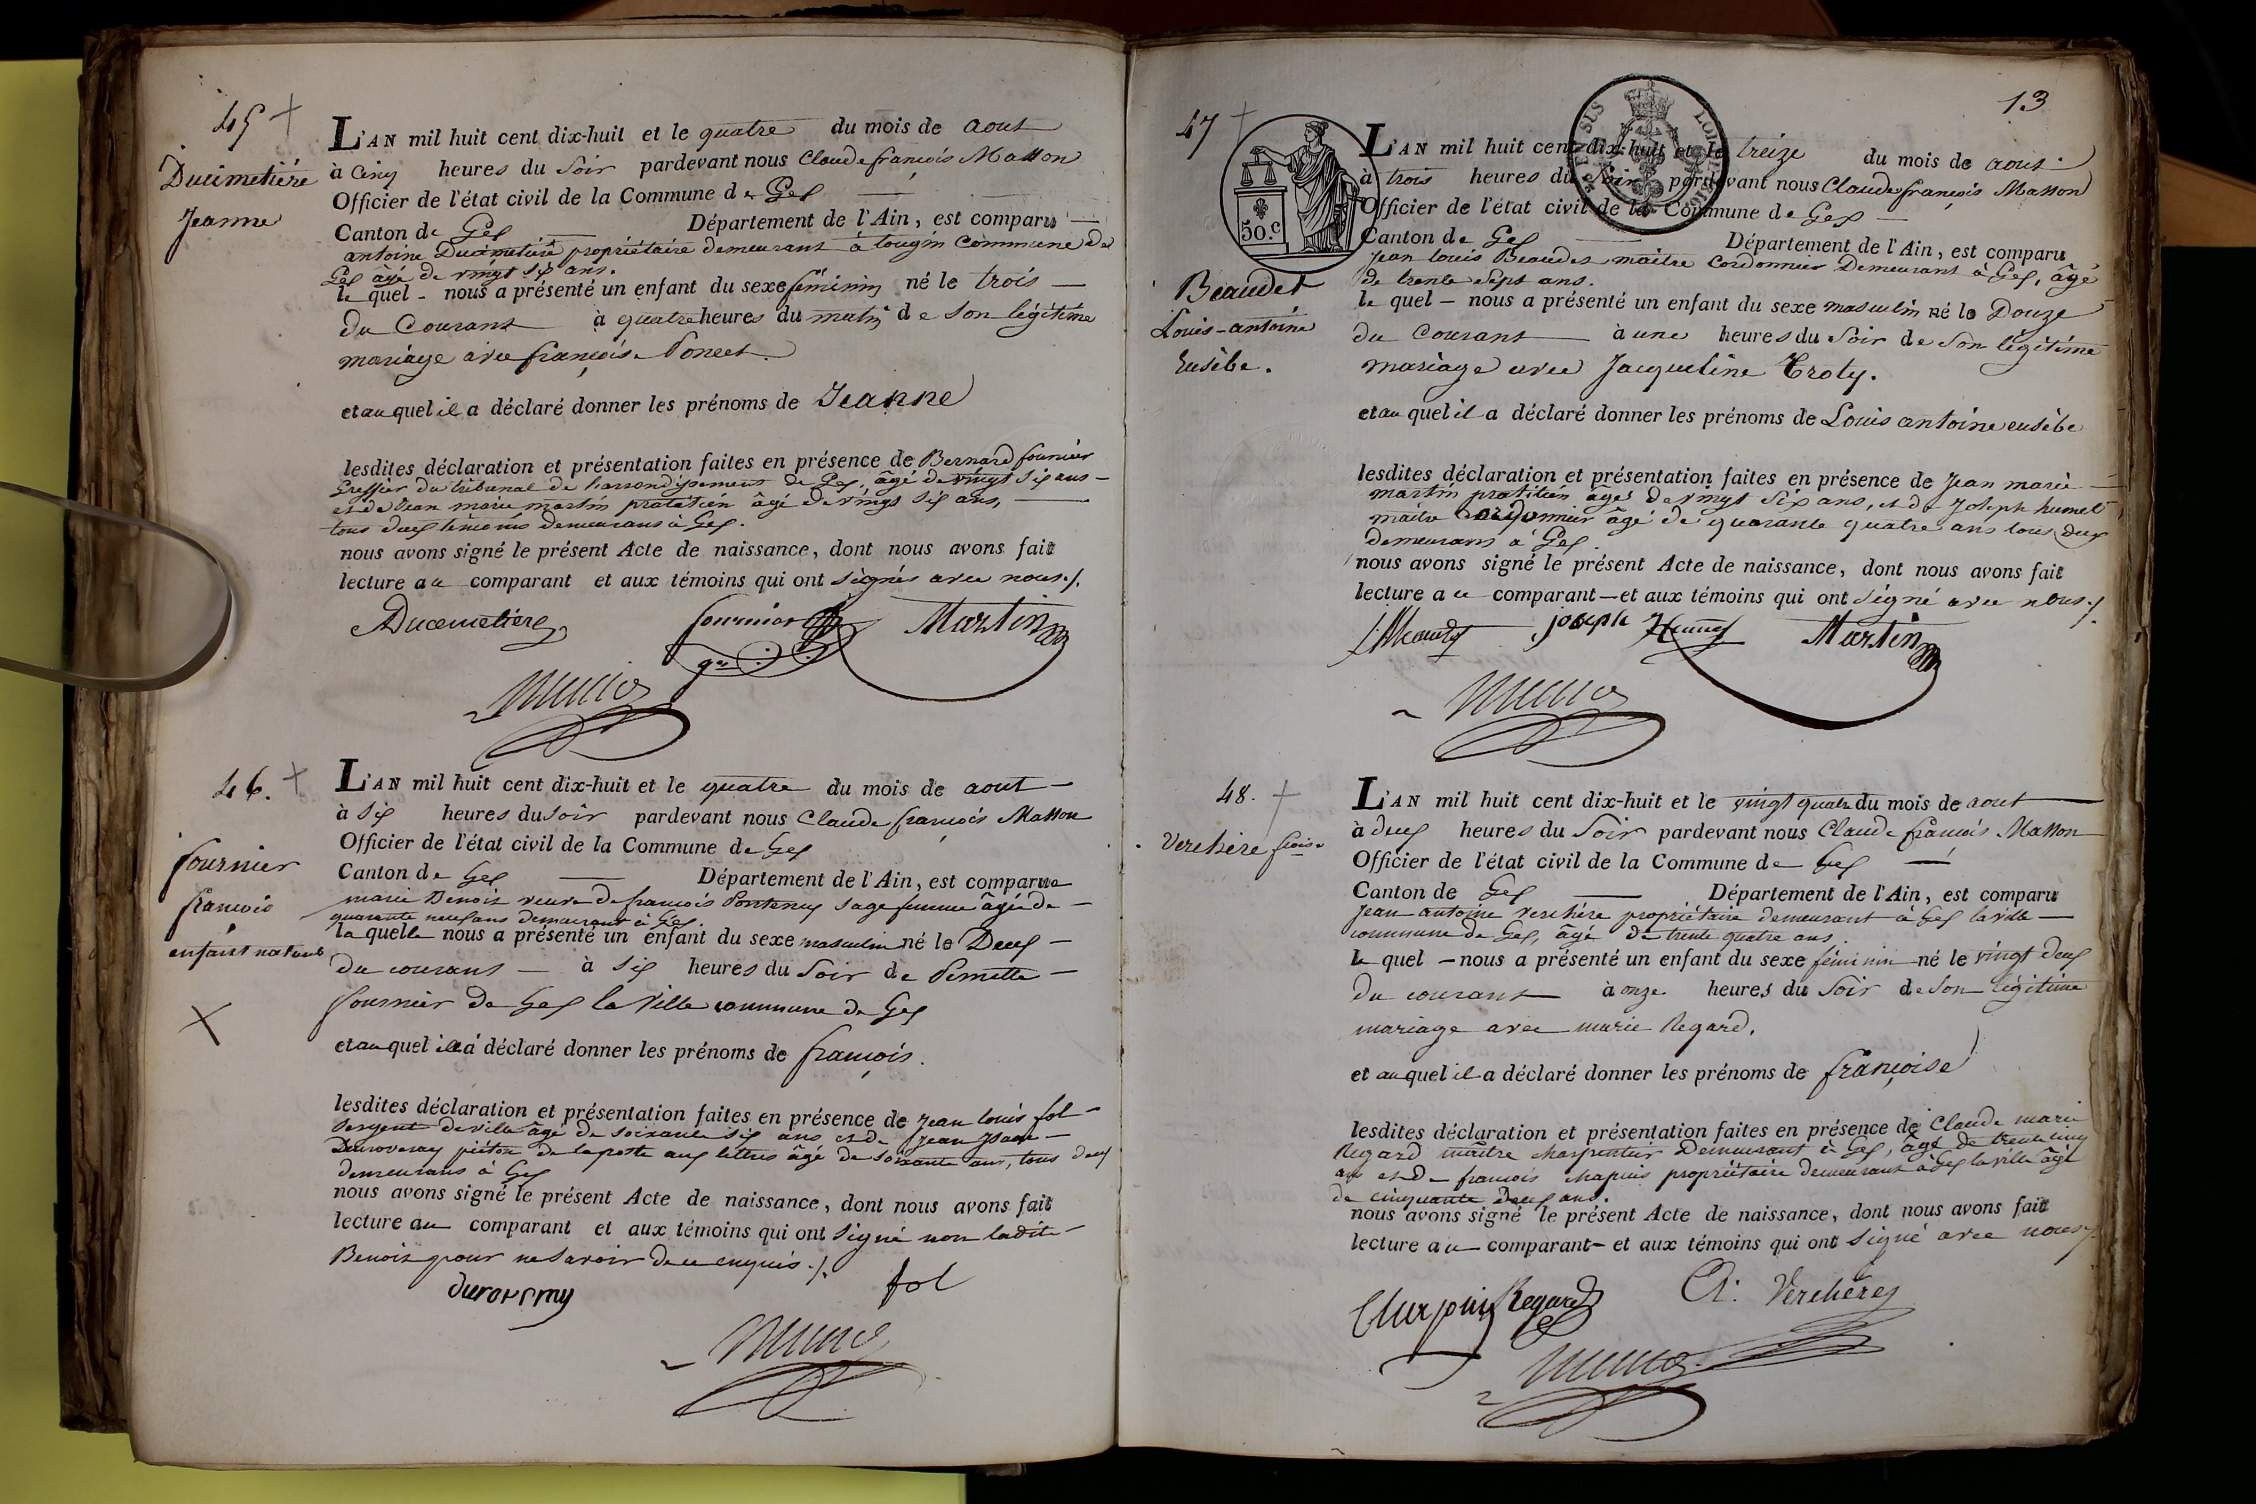 45 +
Ducimetière
Jeanne
L'AN mil huit cent dix-huit et le quatre du mois de aout
à cinq heures du soir pardevant nous Claude françois Masson
Officier de l'état civil de la Commune de Gex
Canton de Gex Département de l'Ain, est comparu
antoine Ducimetière propriétaire demeurant à tougin Commune de
Gex âgé de vingt six ans.
le quel - nous a présenté un enfant du sexe féminin né le trois
du Courant à quatre heures du matin de son légitime
mariage avec françoise Poncet.
et au quel il a déclaré donner les prénoms de Jeanne
lesdites déclaration et présentation faites en présence de Bernard fournier
Greffier du tribunal de l'arrondissement de Gex, âgé de vingt six ans -
et de Jean marie martin pratatien âgé de vingt six ans,
tous deux témoins demeurans à Gex.
nous avons signé le présent Acte de naissance, dont nous avons fait
lecture au comparant et aux témoins qui ont signés avec nous ./.
Ducimetière fournier Martin
gr
46. +
fournier
françois
enfant naturel
X
L'AN mil huit cent dix-huit et le quatre du mois de aout -
à six heures du soir pardevant nous Claude françois Masson
Officier de l'état civil de la Commune de Gex
Canton de Gex Département de l'Ain, est comparue
marie Benoit veuve de françois sage femme âgée de -
quarante neuf ans demeurant à Gex.
la quelle nous a présenté un enfant du sexe masculin né le Deux -
du courant - à six heures du soir de Pernette -
fournier de Gex la ville commune de Gex
et au quel il a déclaré donner les prénoms de françois.
lesdites déclaration et présentation faites en présence de Jean louis fol -
sergent de ville âgé de soixante six ans et de Jean Isaac -
Duroveray piéton de la poste aux lettres âgé de soixante ans, tous deux
demeurans à Gex
nous avons signé le présent Acte de naissance, dont nous avons fait
lecture au comparant et aux témoins qui ont signé non ladite -
Benoit pour ne savoir de ce enquis ./.
duroveray fol
13
47 +
50.c
Beaudet
Louis-antoine
Eusèbe.
L'AN mil huit cent dix-huit et le treize du mois de aout.
à trois heures du soir pardevant nous Claude françois Masson
Officier de l'état civil de la Commune de Gex
Canton de Gex Département de l'Ain, est comparu
Jean louis Beaudet maître Cordonnier Demeurant à Gex, âgé
de trente sept ans.
le quel - nous a présenté un enfant du sexe masculin né le Douze
du Courant à une heures du soir de son légitime
mariage avec Jacqueline Croty.
et au quel il a déclaré donner les prénoms de Louis antoine eusèbe
lesdites déclaration et présentation faites en présence de Jean marie
martin pratitien âgé de vingt six ans, et de Joseph humet
maître cordonnier âgé de quarante quatre ans tous deux
demeurans à Gex.
nous avons signé le présent Acte de naissance, dont nous avons fait
lecture au comparant - et aux témoins qui ont signé avec nous ./.
joseph Humet Martin
48. +
Verchère fçoise
L'AN mil huit cent dix-huit et le vingt quatre du mois de aout
à deux heures du soir pardevant nous Claude françois Masson
Officier de l'état civil de la Commune de Gex
Canton de Gex Département de l'Ain, est comparu
Jean antoine verchère propriétaire demeurant à Gex la ville -
commune de Gex, âgé de trente quatre ans.
le quel - nous a présenté un enfant du sexe féminin né le vingt deux
du courant à onze heures du soir de son légitime
mariage avec marie Regard.
et au quel il a déclaré donner les prénoms de françoise
lesdites déclaration et présentation faites en présence de Claude marie
Regard maître charpentier Demeurant à Gex, âgé de trente cinq
ans et de françois chapuis propriétaire demeurant à Gex la ville âgé
de cinquante deux ans.
nous avons signé le présent Acte de naissance, dont nous avons fait
lecture au comparant - et aux témoins qui ont signé avec nous ./.
Regard Verchère